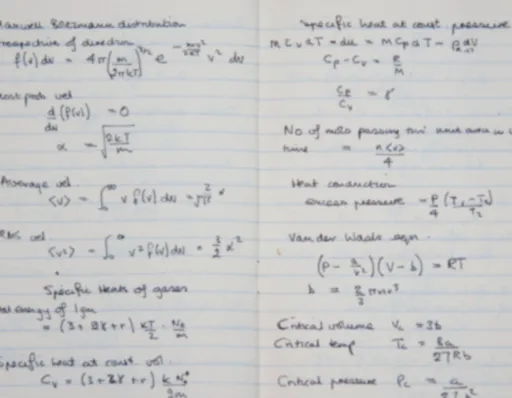 Maxwell Boltzmann distribution
irrespective of direction
f(v) dv = 4π(m/2πkT)^3/2 e^-mv²/2kT v² dv
most prob vel
d/dv (f(v)) = 0
α = √(2kT/m)
Average vel.
<v> = ∫₀^∞ v f(v) dv = 2/√π α
RMS vel
<v²> = ∫₀^∞ v² f(v) dv = 3/2 α²
Specific Heats of gases
energy of 1gm
= (3+2γ+r) kT/2 · N₀/m
Specific heat at const vol.
Cv = (3+2γ+r) k N₀/2m
Specific heat at const pressure
m Cv dT = du = m Cp dT -
Cp - Cv = R/M
Cp/Cv = γ
No of mols passing thro' unit area in
time = n<v>/4
Heat conduction
excess pressure = P/4 (T₁-T₂)/T₂
Van der Waals eqn.
(P - a/v²)(V - b) = RT
b =
Critical volume Vc = 3b
Critical temp Tc = 8a/27Rb
Critical pressure Pc = a/27b²